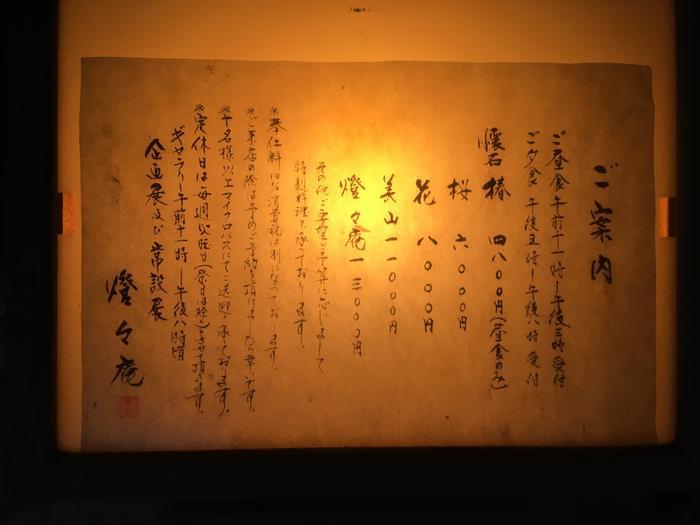 ご案内
ご昼食 午前十一時ー午後三時 受付
ご夕食 午後五時ー午後八時 受付
懐石 椿 四八〇〇円(昼食のみ)
桜 六〇〇〇円
花 八〇〇〇円
美山 一一〇〇〇円
燈々庵 一三〇〇〇円
その他ご要望ご予算に応じまして
特別料理も承っております。
※奉仕料10%消費税は別になっております。
※ご来店の際は予めご予約頂けましたら幸いです。
※十名様以上マイクロバスにてご送迎も承っております。
※定休日は毎週火曜日(祭日は除く)とさせて頂きます。
ギャラリー午前十一時ー午後八時頃
企画展及び常設展
燈々庵